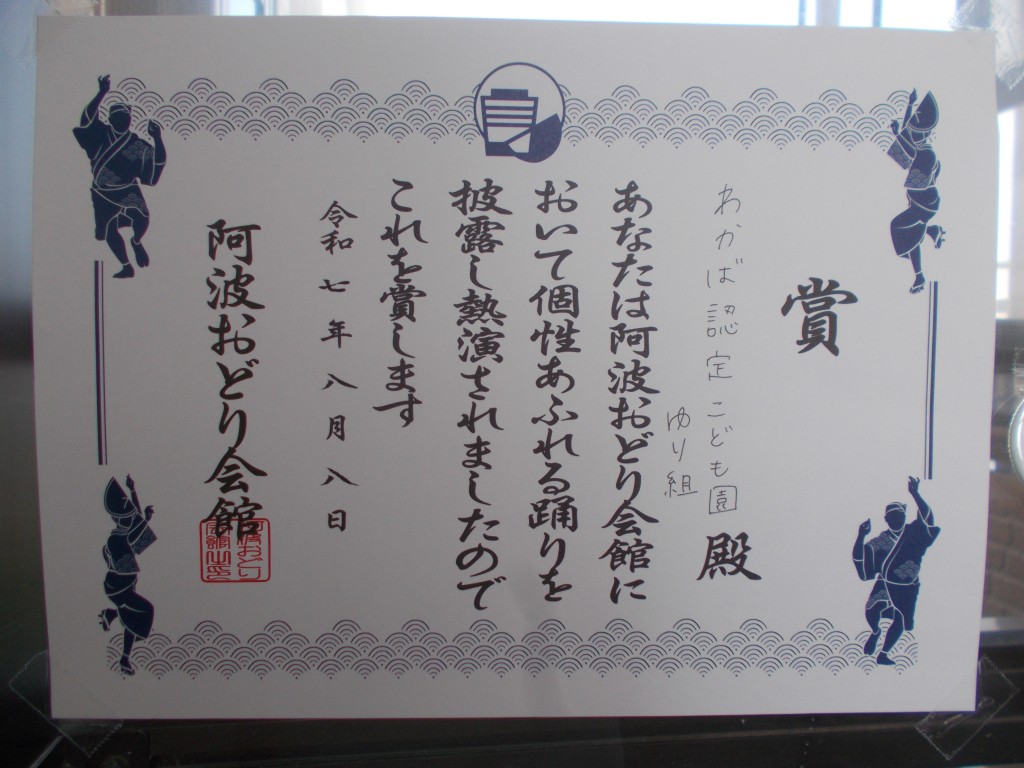 賞
わかば認定こども園
ゆり組
殿
あなたは阿波おどり会館に
おいて個性あふれる踊りを
披露し熱演されましたので
これを賞します
令和七年八月八日
阿波おどり会館